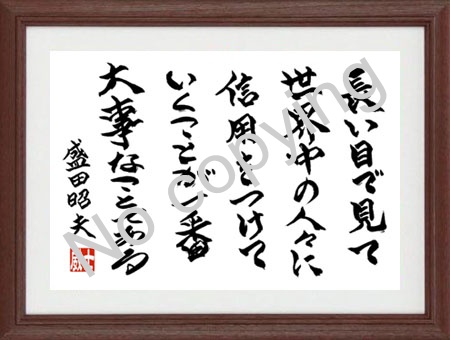 長い目で見て
世界中の人々に
信用をつけて
いくことが一番
大事なことである
盛田昭夫
No copying